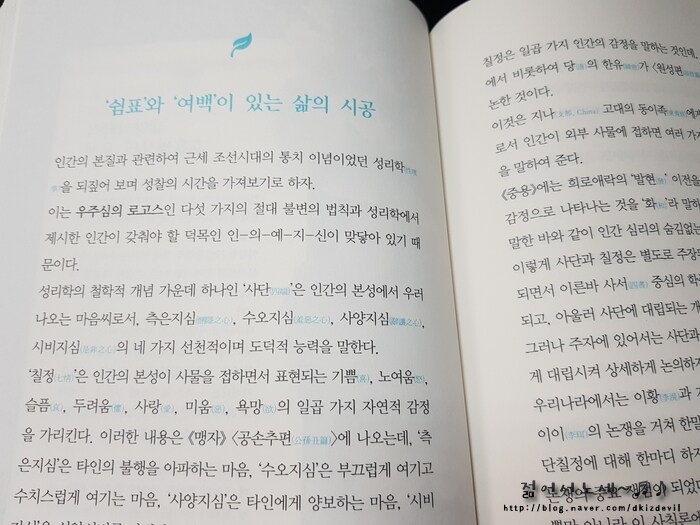 '쉼표'와 '여백'이 있는 삶의 시공
인간의 본질과 관련하여 근세 조선시대의 통치 이념이었던 성리학
을 되짚어 보며 성찰의 시간을 가져보기로 하자.
이는 우주심의 로고스인 다섯 가지의 절대 불변의 법칙과 성리학에서
제시한 인간이 갖춰야 할 덕목인 인-의-예-지-신이 맞닿아 있기 때
문이다.
성리학의 철학적 개념 가운데 하나인 '사단(四端)'은 인간의 본성에서 우러
나오는 마음씨로서, 측은지심(惻隱之心), 수오지심(羞惡之心), 사양지심(辭讓之心),
시비지심(是非之心)의 네 가지 선천적이며 도덕적 능력을 말한다.
'칠정(七情)'은 인간의 본성이 사물을 접하면서 표현되는 기쁨(喜), 노여움(怒),
슬픔(哀), 두려움(懼), 사랑(愛), 미움(惡), 욕망(欲)의 일곱 가지 자연적 감정
을 가리킨다. 이러한 내용은 《맹자》 〈공손추편(公孫丑篇)〉에 나오는데, '측
은지심'은 타인의 불행을 아파하는 마음, '수오지심'은 부끄럽게 여기고
수치스럽게 여기는 마음, '사양지심'은 타인에게 양보하는 마음, '시비
칠정은 일곱 가지 인간의 감정을 말하는 것인데,
에서 비롯하여 당(唐)의 한유(韓愈)가 〈원성편
논한 것이다.
이것은 지나(支那, China) 고대의 동이족
로서 인간이 외부 사물에 접하면 여러 가지
을 말하여 준다.
《중용》에는 희로애락의 '발현' 이전을
감정으로 나타나는 것을 '화(和)'라 말하
말한 바와 같이 인간 심리의 숨김없는
이렇게 사단과 칠정은 별도로 주장되
되면서 이른바 사서(四書) 중심의 학
되고, 아울러 사단에 대립되는 개
그러나 주자에 있어서는 사단과
게 대립시켜 상세하게 논의하지
우리나라에서는 이황(李滉)과 기
이이(李珥)의 논쟁을 거쳐 한말
단칠정에 대해 한마디 하지
http://blog.naver.com/dkizdevil